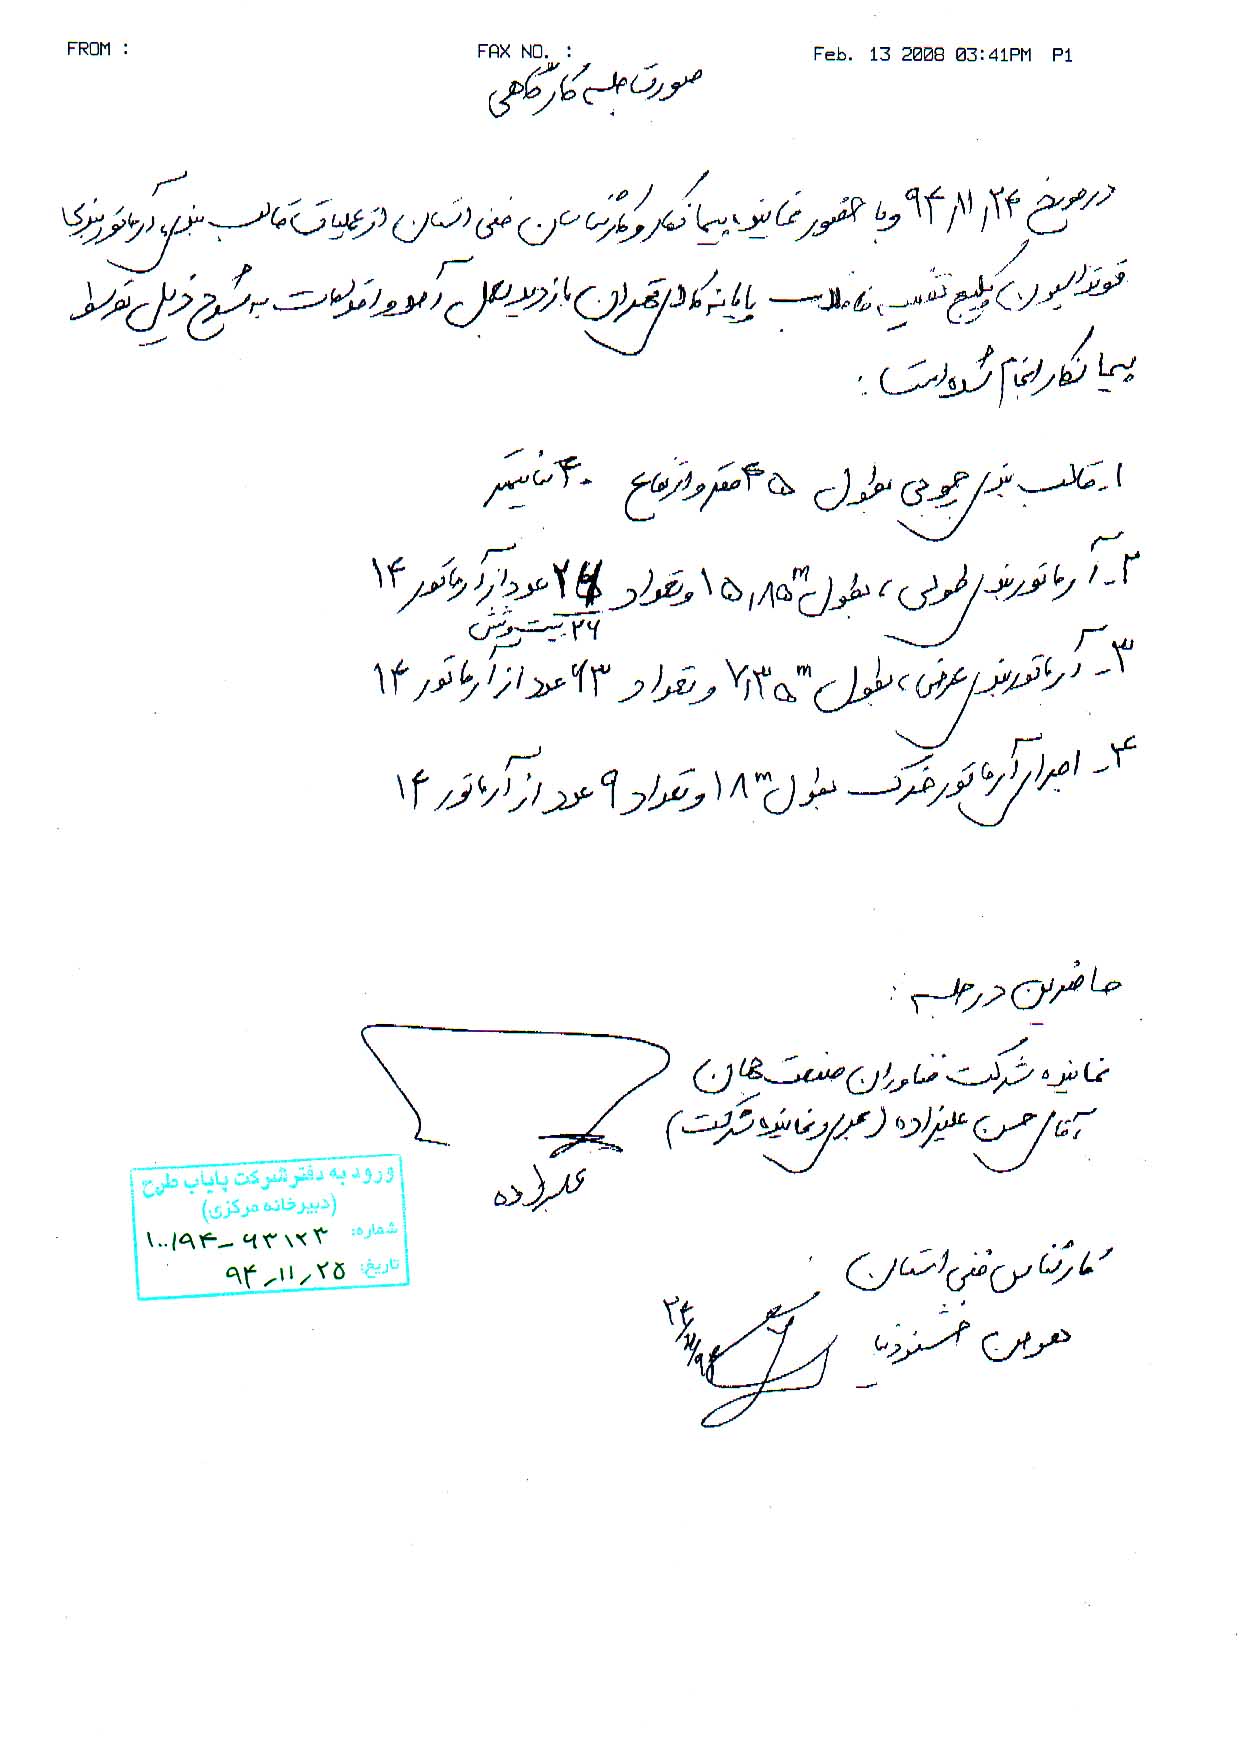 FROM :
FAX NO. :
Feb. 13 2008 03:41PM P1
صورتجلسه کارگاهی
در مورخ ۹۴/۱۱/۲۴ و با حضور نماینده پیمانکار و کارشناسان فنی استان از عملیات قالب بندی، آرماتوربندی
فونداسیون پکیج تصفیه فاضلاب پایانه کالای تهران بازدید بعمل آمد و اقدامات به شرح ذیل توسط
پیمانکار انجام شده است :
۱- قالب بندی چوبی بطول ۴۵ متر و ارتفاع ۴۰ سانتیمتر
۲- آرماتوربندی طولی، بطول ۱۵٫۸۵m و تعداد ۲۶ عدد از آرماتور ۱۴
۲۶ بیست و شش
۳- آرماتوربندی عرضی، بطول ۷٫۳۵m و تعداد ۶۳ عدد از آرماتور ۱۴
۴- اجرای آرماتور خرک بطول ۱۸m و تعداد ۹ عدد از آرماتور ۱۴
حاضرین در جلسه :
نماینده شرکت فناوران صنعت جهان
آقای حسن علیزاده (مجری و نماینده شرکت)
علیزاده
ورود به دفتر شرکت پایاب طرح
(دبیرخانه مرکزی)
شماره: ۱۰۰/۹۴-۶۳۱۲۳
تاریخ: ۹۴/۱۱/۲۵
کارشناس فنی استان :
هومن خشنودنیا
۹۴/۱۱/۲۴